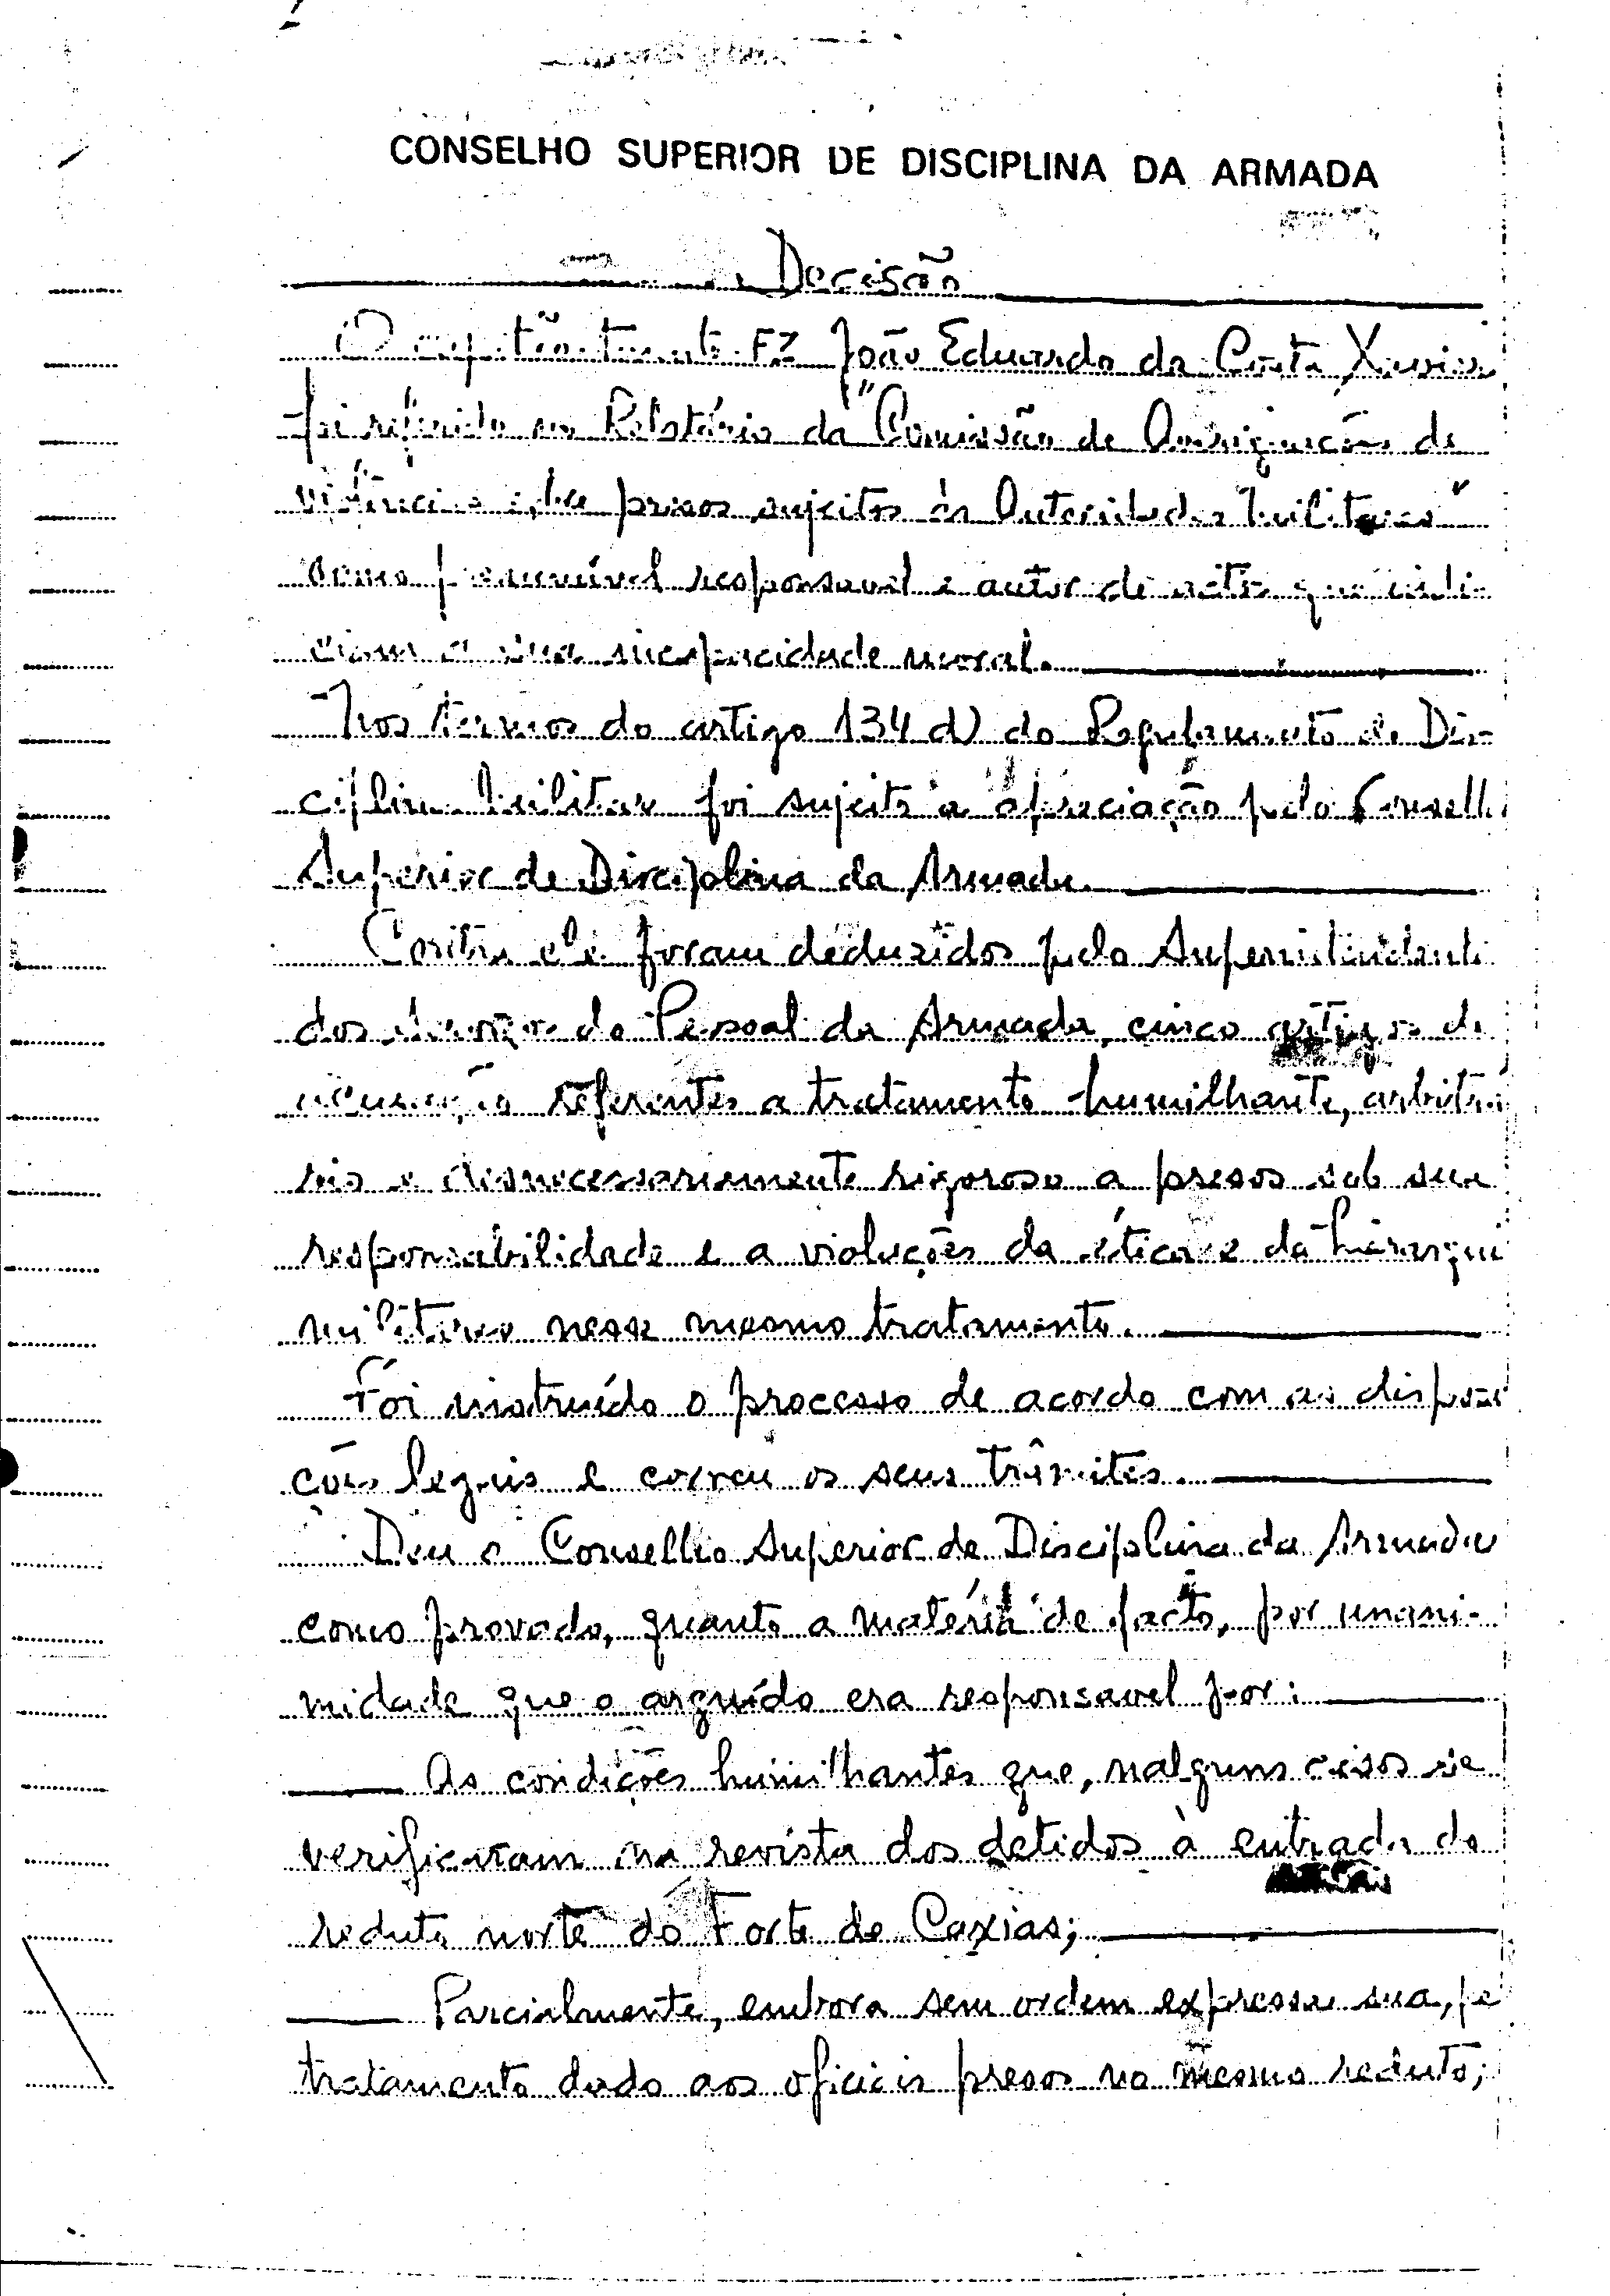 CONSELHO SUPERIOR DE DISCIPLINA DA ARMADA
Decisão
O capitão-tenente FZ João Eduardo da Costa Xavier
foi referido no Relatório da "Comissão de Averiguação de
violências sobre presos sujeitos às Autoridades Militares"
como presumível responsavel e autor de actos que indi-
ciam a sua incapacidade moral.
Nos termos do artigo 134 d) do Regulamento de Dis-
ciplina Militar foi sujeito a apreciação pelo Conselho
Superior de Disciplina da Armada.
Contra ele foram deduzidos pelo Superintendente
dos Serviços do Pessoal da Armada, cinco artigos de
acusação referentes a tratamento humilhante, arbitrá-
rio e desnecessariamente rigoroso a presos sob sua
responsabilidade e a violações da ética e da hierarquia
militares nesse mesmo tratamento.
Foi instruído o processo de acordo com as disposi
ções legais e correu os seus trâmites.
Deu o Conselho Superior de Disciplina da Armada
como provado, quanto a matéria de facto, por unani-
midade que o arguído era responsavel por:
As condições humilhantes que, nalguns casos se
verificaram na revista dos detidos à entrada do
reduto norte do Forte de Caxias;
Parcialmente, embora sem ordem expressa sua,
tratamento dado aos oficiais presos no mesmo reduto;